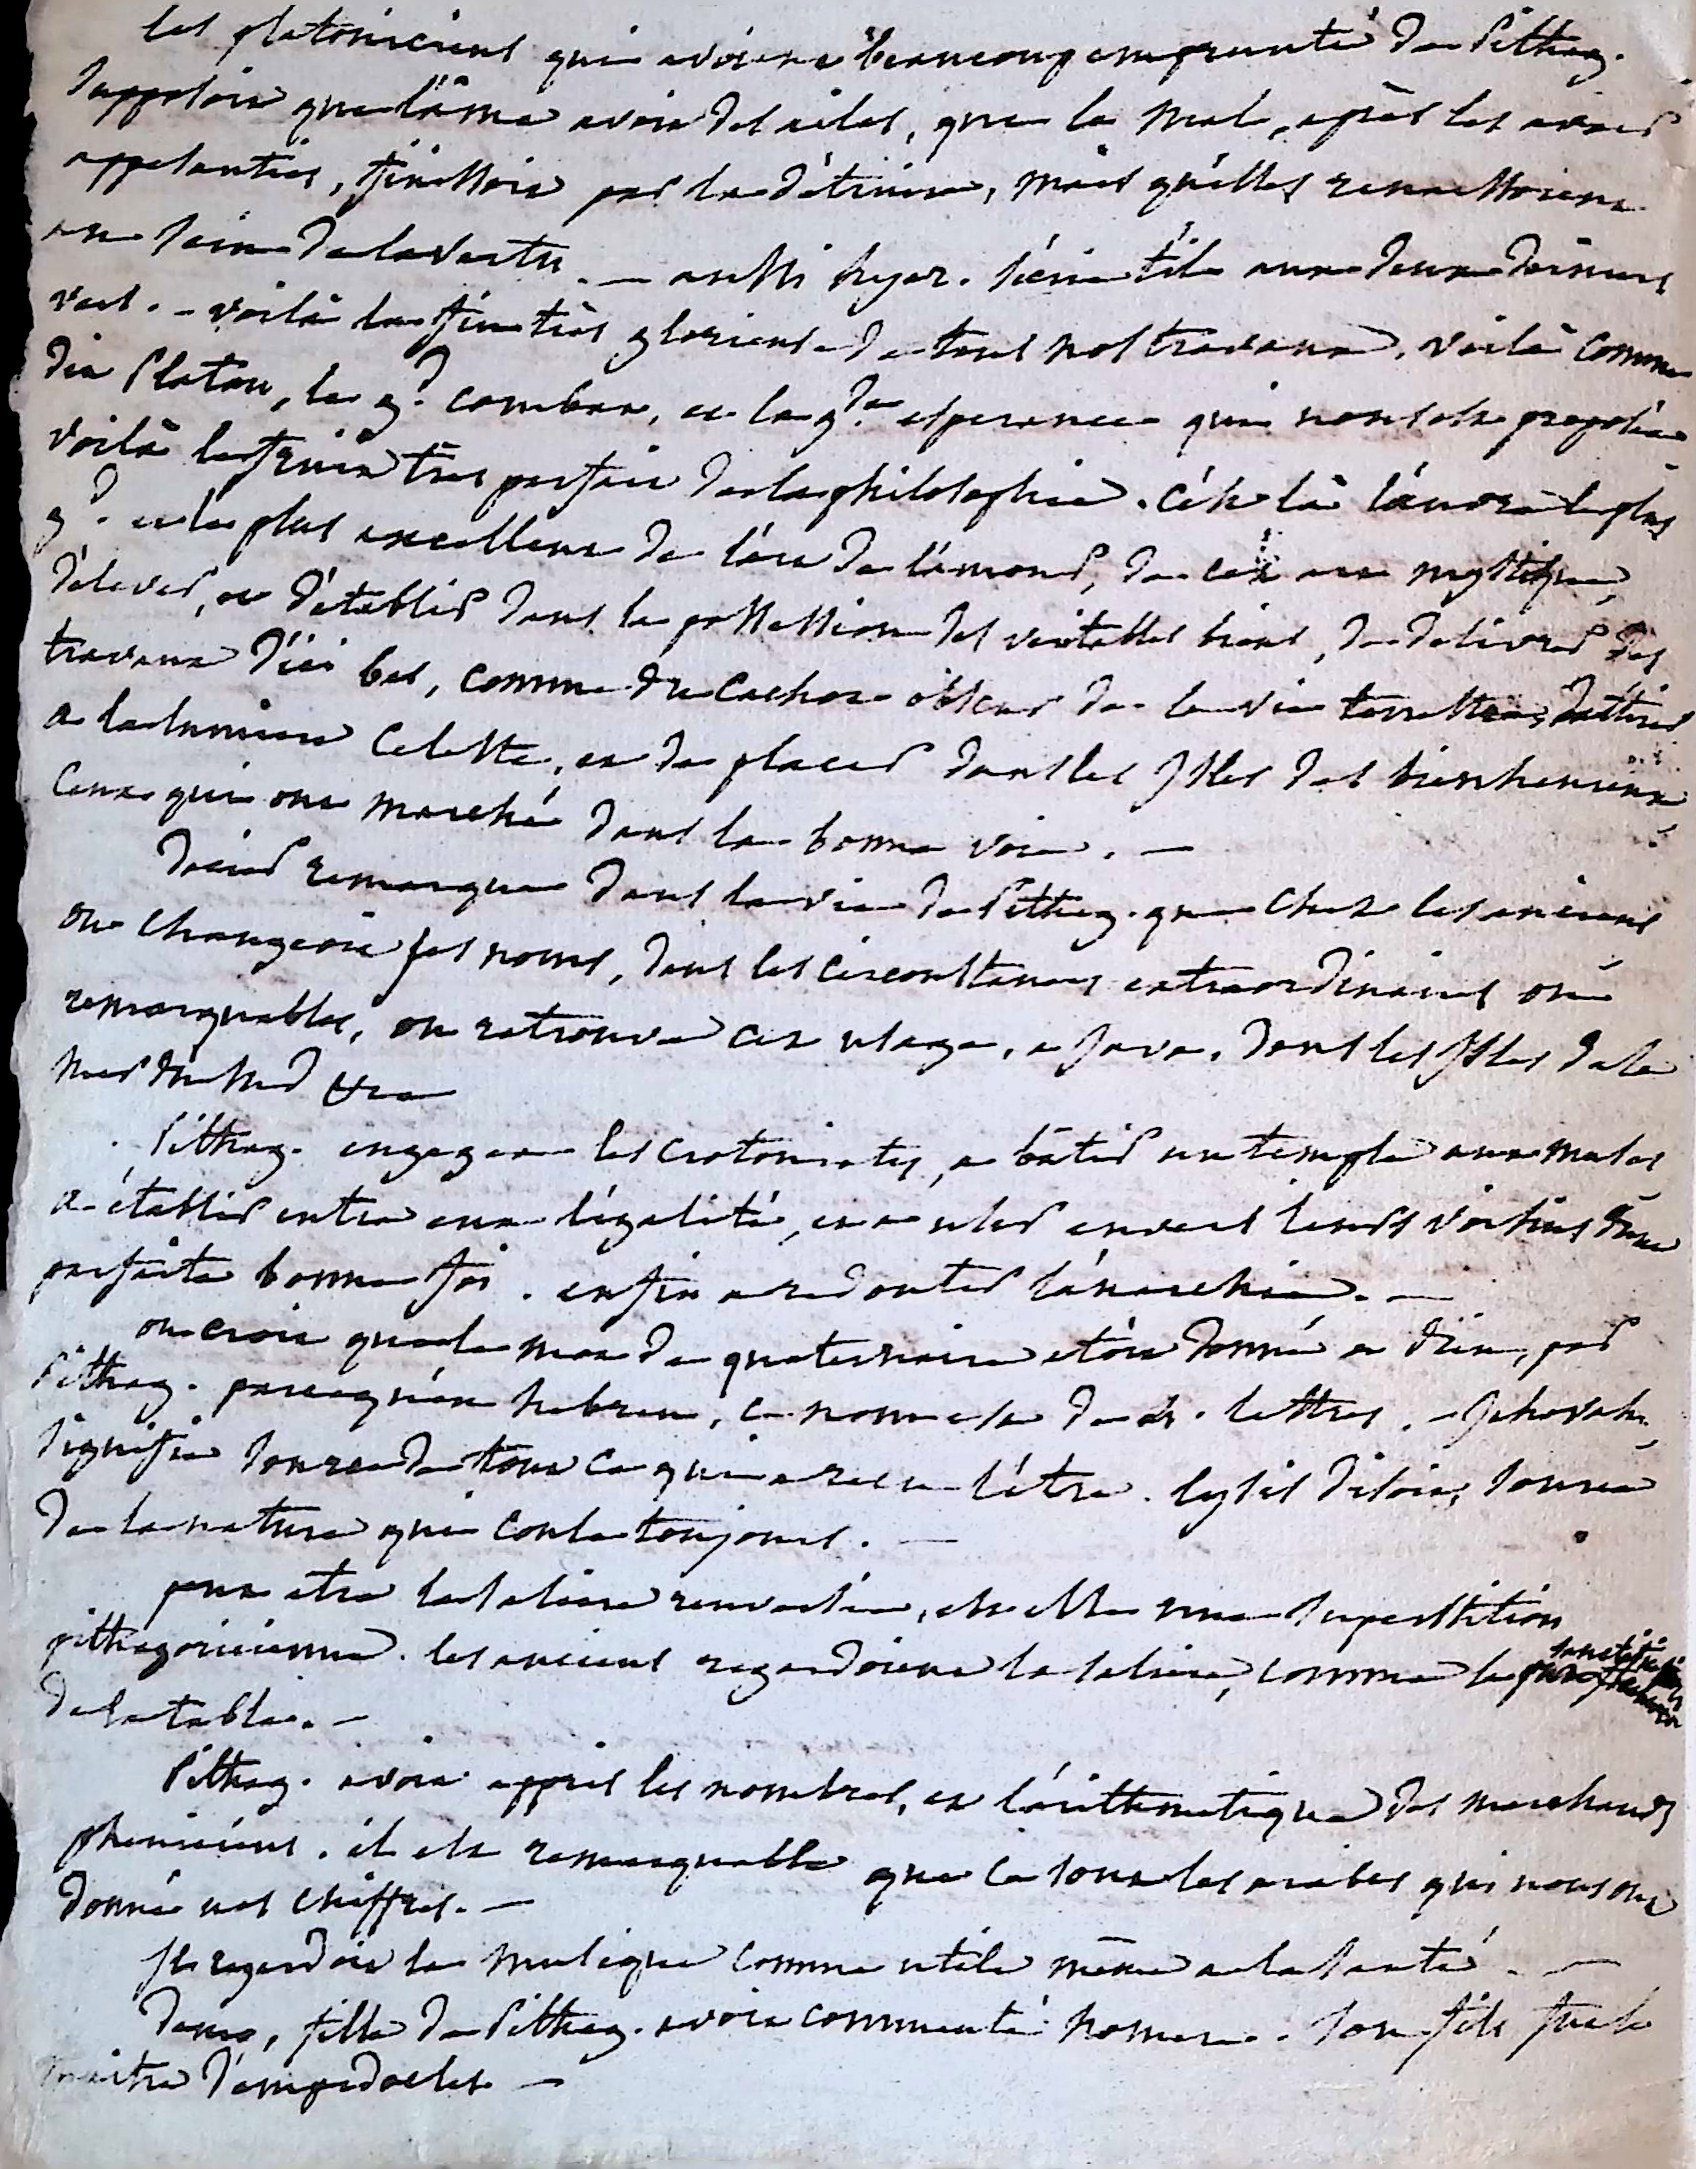 les platoniciens qui avoient beaucoup emprunté de Pithag.
supposoient que l'âme avoit des ailes, que le mal, après les avoir
appesanties, finissoit par les détruire, mais qu'elles renaissoient
au sein de la vertu. — aussi hyer. s'écrie t'il aux deux derniers
vers. – voilà la fin très glorieuse de tous nos travaux, voilà comme
dit Platon, le gd. combat, et la gde. esperance qui nous est proposée
voilà le fruit très parfait de la philosophie. c'est là l'œuvre le plus
gd. et le plus excellent de l'art de l'amour, de cet art mystique,
d'élever, et d'établir dans la possession des veritables biens, de delivrer des
travaux d'ici bas, comme du cachot obscur de la vie terrestre, d'attirer
a la lumiere celeste, et de placer dans les Isles des bienheureux
ceux qui ont marché dans la bonne voie. —
Dacier remarque dans la vie de Pithag. que chez les anciens
on changeoit ses noms, dans les circonstances extraordinaires ou
remarquables, on retrouve cet usage, a Java, dans les Isles de la
mer du sud &ca
Pithag. engagea les crotoniates, a bâtir un temple aux muses,
a établir entre eux l'égalité, et a user envers leurs voisins d'une
parfaite bonne foi. enfin a redouter l'anarchie. —
on croit que le mot de quaternaire etoit donné a dieu, par
Pithag. parce qu'en hebreu, ce nom est de 4. lettres. – Jehovah,
signifie source de tout ce qui a reçu l'être. lysis disoit, source
de la nature qui coule toujours. —
peut etre la saliere renversée, est elle une superstition
pithagoricienne. les anciens regardoient la saliere, comme la sanctification
de la table. —
Pithag. avoit appris les nombres, et l'arithmetique des marchands
pheniciens. il est remarquable que ce sont les arabes qui nous ont
donné nos chiffres. —
Il regardoit la musique comme utile même a la santé. —
Damo, fille de Pithag. avoit commenté homere. son fils fut le
maitre d'empedocles —